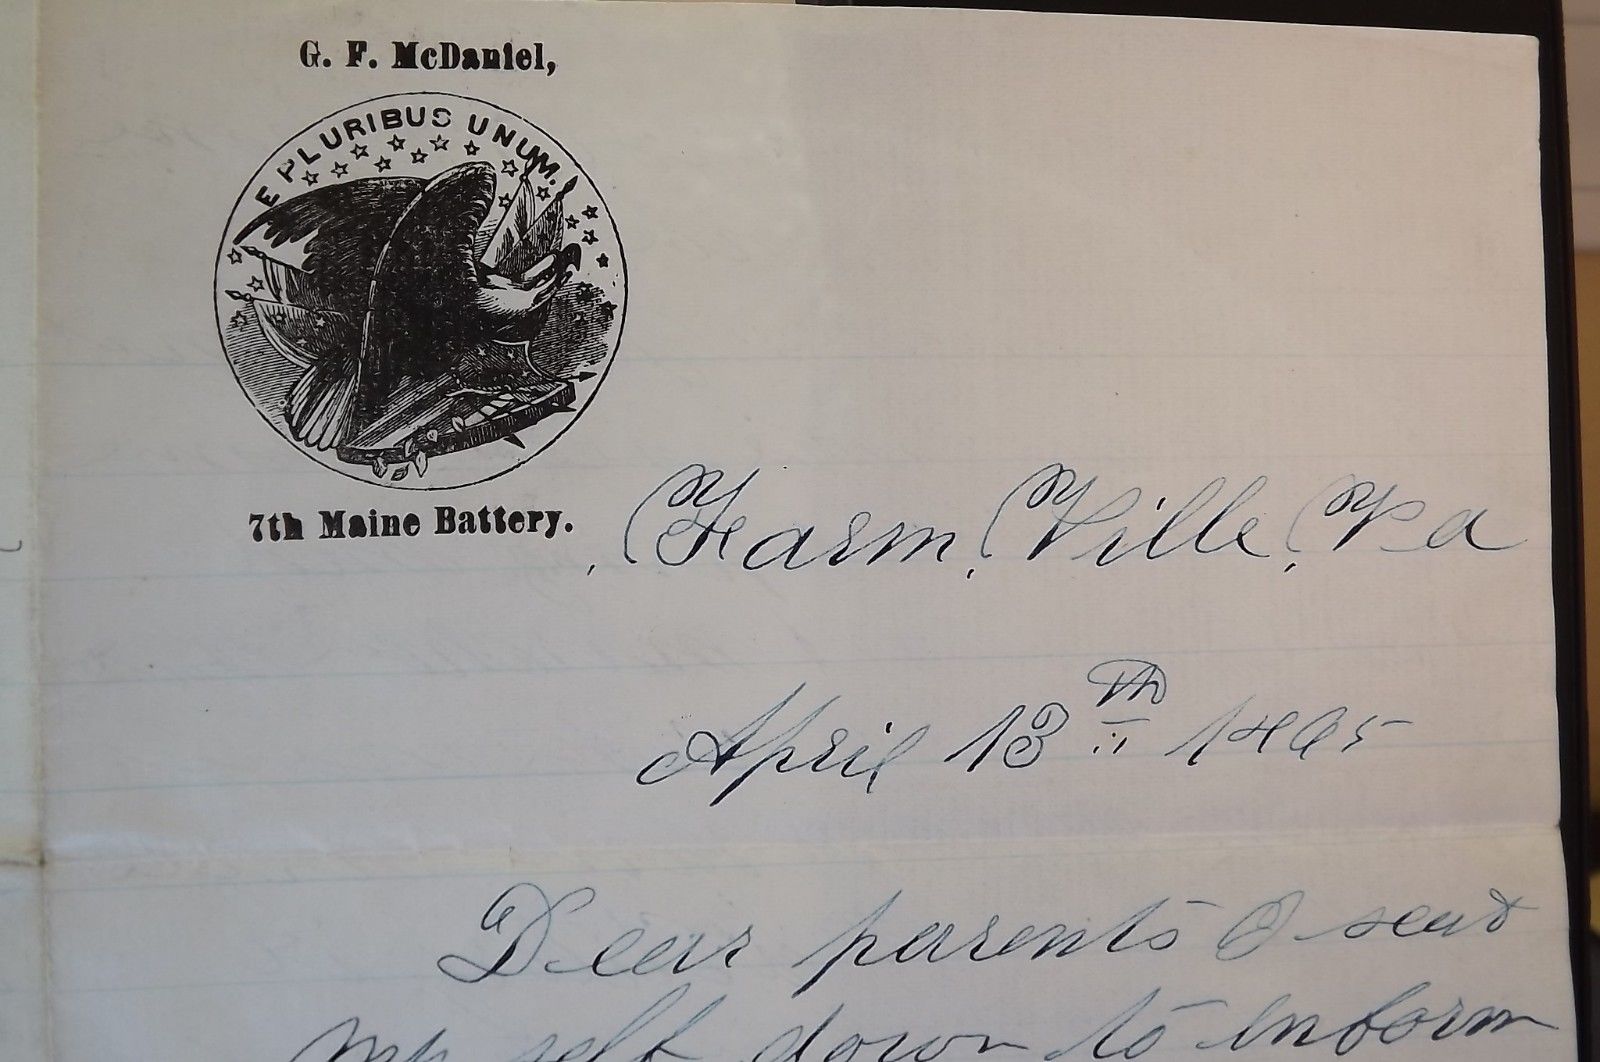 G. F. McDaniel,
E PLURIBUS UNUM.
7th Maine Battery.
, Farm, Ville, Va
April 13th 1865
Dear parents I seat
my self down to inform